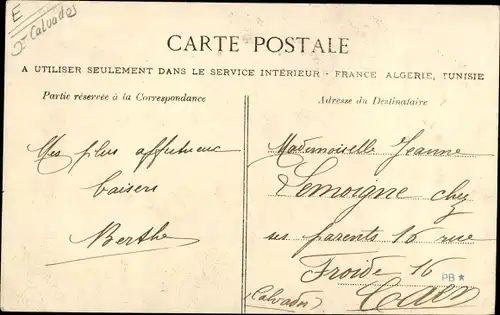 E
Calvados
CARTE POSTALE
A UTILISER SEULEMENT DANS LE SERVICE INTÉRIEUR - FRANCE ALGERIE, TUNISIE
Partie réservée à la Correspondance
Mes plus affectueux
baisers
Berthe
Adresse du Destinataire
Mademoiselle Jeanne
Lemoigne chez
ses parents 16 rue
Froide 16
PB *
(Calvados) Caen